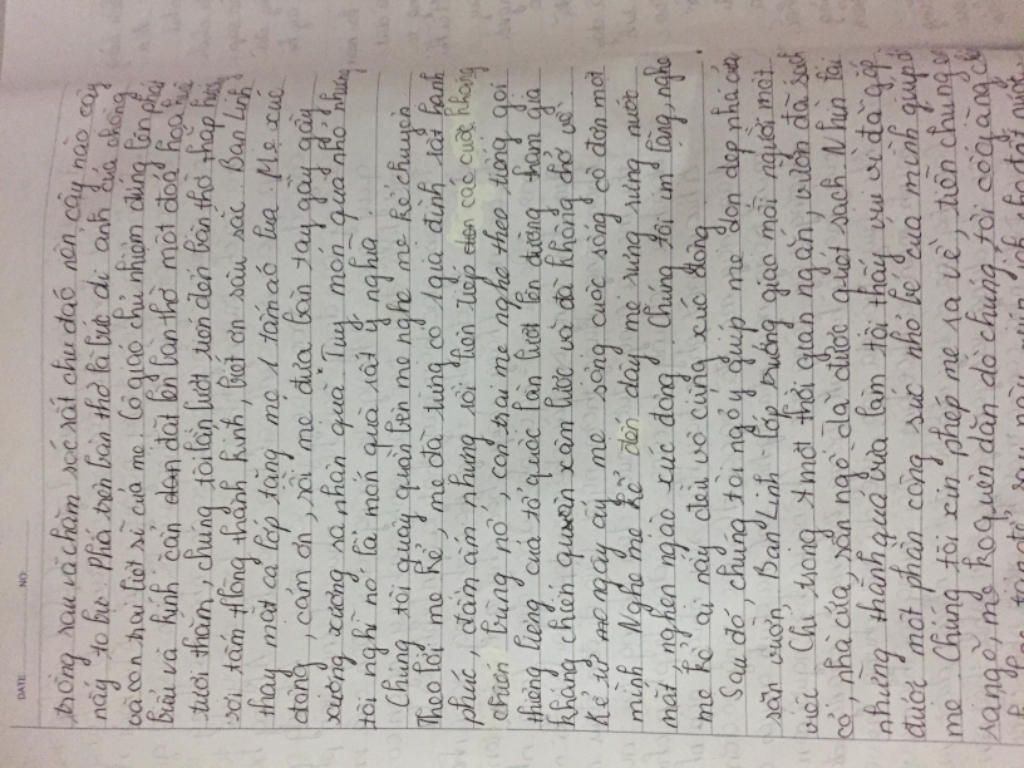 DATE NO
trồng rau và chăm sóc rất chu đáo nên cây nào cây
nấy to bự. Phía trên bàn thờ là bức di ảnh của chồng
và con trai liệt sĩ của mẹ. Cô giáo chủ nhiệm đứng lên phát
biểu và kính cẩn dan đặt lên bàn thờ một đoá hoa
tươi thắm, chúng tôi lần lượt tiến đến bàn thờ thắp hương
với tấm lòng thành kính, biết ơn sâu sắc. Bạn Linh
thay mặt cả lớp tặng mẹ 1 tấm áo lụa. Mẹ xúc
động, cám ơn, rồi mẹ đưa bàn tay gầy gầy
xương xương ra nhận quà. Tuy món quà nhỏ nhưng
tôi nghĩ nó là món quà rất ý nghĩa.
Chúng tôi quây quần bên mẹ nghe mẹ kể chuyện
Theo lời mẹ kể, mẹ đã từng có 1 gia đình rất hạnh
phúc, đầm ấm nhưng rồi liên tiếp đến các cuộc kháng
chiến bùng nổ, con trai mẹ nghe theo tiếng gọi
thiêng liêng của tổ quốc lần lượt lên đường tham gia
kháng chiến quân xâm lược và đã không trở về
Kể từ ngày ấy mẹ sống cuộc sống cô đơn một
mình. Nghe mẹ kể đến đây mẹ rưng rưng nước
mắt nghẹn ngào xúc động. Chúng tôi im lặng, nghe
mẹ kể ai nấy đều vô cùng xúc động
Sau đó, chúng tôi ngỏ ý giúp mẹ dọn dẹp nhà cửa
sân vườn. Bạn Linh - lớp trưởng giao mỗi người một
việc. Chỉ trong 1 một thời gian ngắn, vườn đã sạch
cỏ, nhà cửa, sân ngõ đã được quét sạch. Nhìn lại
những thành quả vừa làm tôi thấy vui vì đã góp
được một phần công sức nhỏ bé của mình giúp đỡ
mẹ. Chúng tôi xin phép mẹ ra về, tiễn chúng
mẹ ko quên dặn dò chúng tôi cố gắng